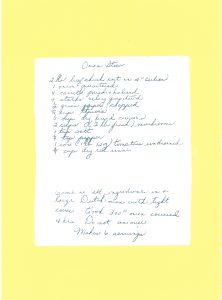 Oven Stew
2 lb beef chuck cut in 2" cubes
1 onion quartered
4 carrots peeled & halved
4 stalks celery
1 green pepper chopped
1 cup dry bread
2 cups mushrooms
1 tsp salt
1 tsp pepper
1 can tomatoes undrained
cup dry red wine
Combine all ingredients in a
large Dutch oven with tight
cover. Cook 300° oven covered
4 hrs. Do not uncover
Makes 6 servings